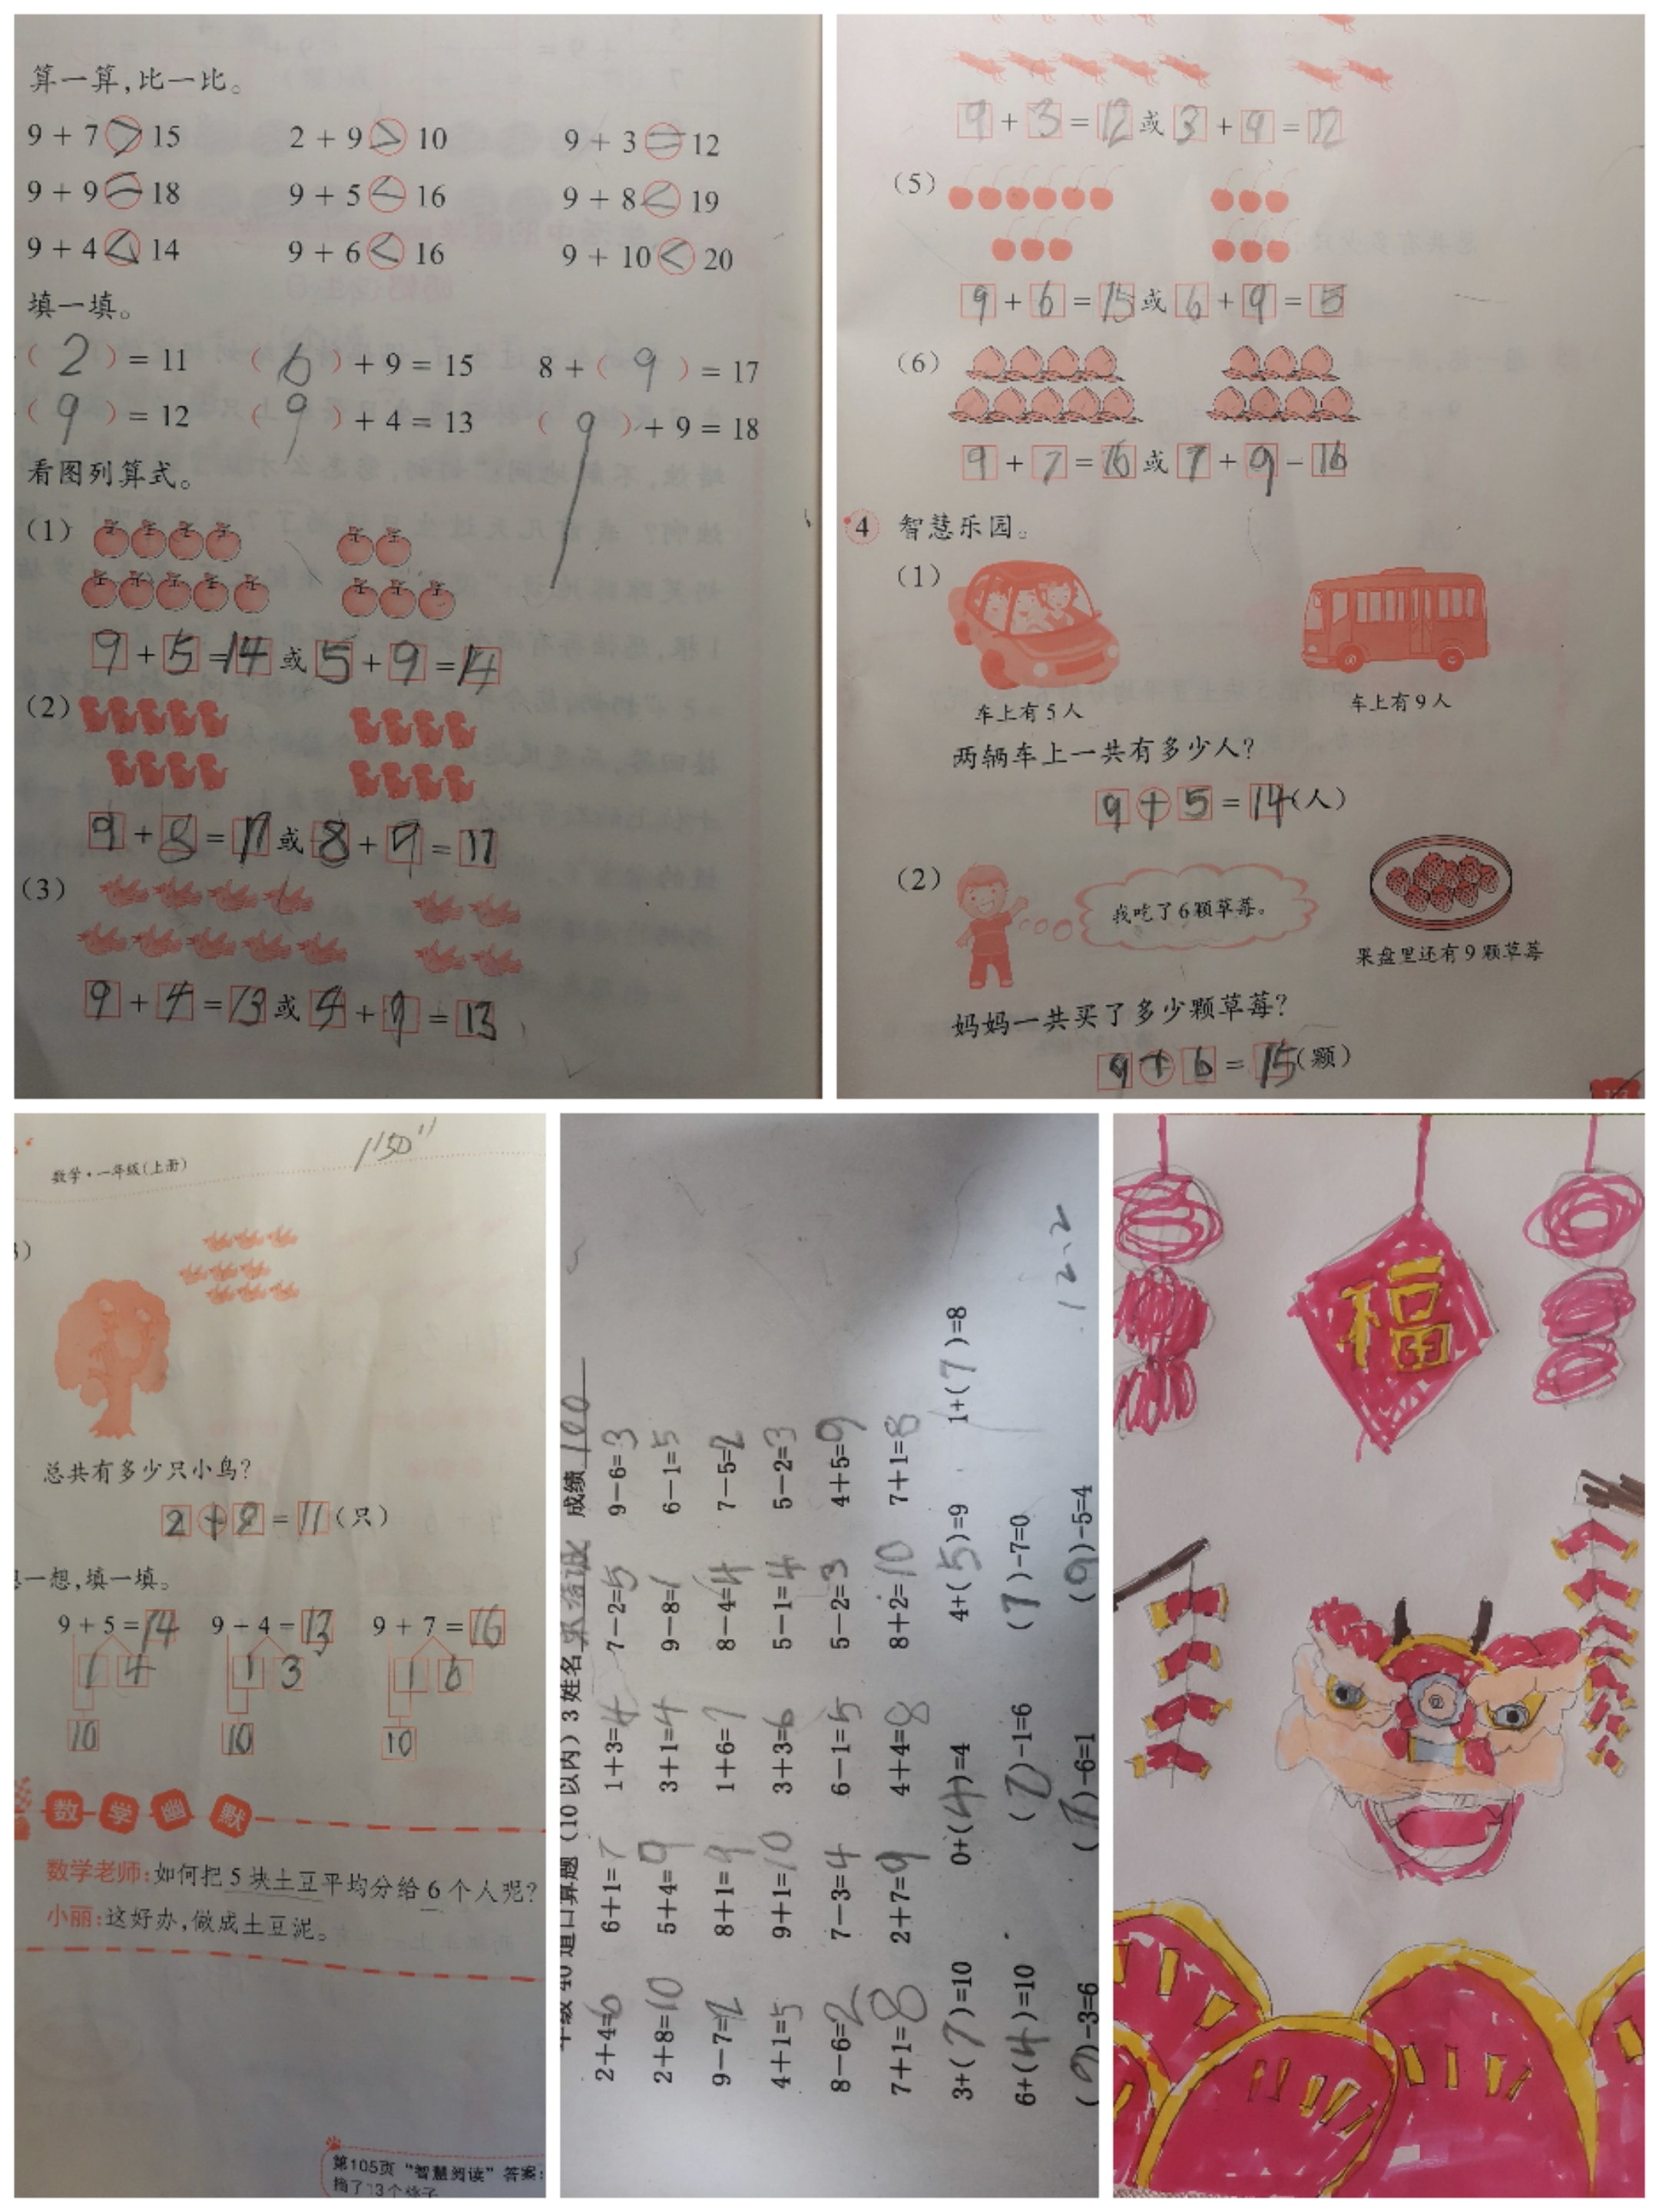 算一算,比一比。
9 + 7 > 15 2 + 9 > 10 9 + 3 = 12
9 + 9 = 18 9 + 5 < 16 9 + 8 < 19
9 + 4 < 14 9 + 6 < 16 9 + 10 < 20
填一填。
( 2 ) = 11 ( 6 ) + 9 = 15 8 + ( 9 ) = 17
( 9 ) = 12 ( 9 ) + 4 = 13 ( 9 ) + 9 = 18
看图列算式。
(1)
9 + 5 = 14 或 5 + 9 = 14
(2)
9 + 8 = 17 或 8 + 9 = 17
(3)
9 + 4 = 13 或 4 + 9 = 13
9 + 3 = 12 或 3 + 9 = 12
(5)
9 + 6 = 15 或 6 + 9 = 15
(6)
9 + 7 = 16 或 7 + 9 = 16
4 智慧乐园。
(1)
车上有5人 车上有9人
两辆车上一共有多少人?
9 + 5 = 14 (人)
(2)
我吃了6颗草莓。
果盘里还有9颗草莓
妈妈一共买了多少颗草莓?
9 + 6 = 15 (颗)
1'50"
数学·一年级(上册)
总共有多少只小鸟?
2 + 9 = 11 (只)
一想,填一填。
9 + 5 = 14 9 + 4 = 13 9 + 7 = 16
1 4 1 3 1 6
10 10 10
数学幽默
数学老师:如何把5块土豆平均分给6个人呢?
小丽:这好办,做成土豆泥。
第105页“智慧阅读”答案:
摘了13个桃子
年级 40 道口算题(10 以内)3 姓名 成绩 100
2+4=6 6+1=7 1+3=4 7-2=5 9-6=3
2+8=10 5+4=9 3+1=4 9-8=1 6-1=5
9-7=2 8+1=9 1+6=7 8-4=4 7-5=2
4+1=5 9+1=10 3+3=6 5-1=4 5-2=3
8-6=2 7-3=4 6-1=5 5-2=3 4+5=9
7+1=8 2+7=9 4+4=8 8+2=10 7+1=8
3+(7)=10 0+(4)=4 4+(5)=9 1+(7)=8
6+(4)=10 (7)-1=6 (7)-7=0
(9)-3=6 (7)-6=1 (9)-5=4
12.2
福